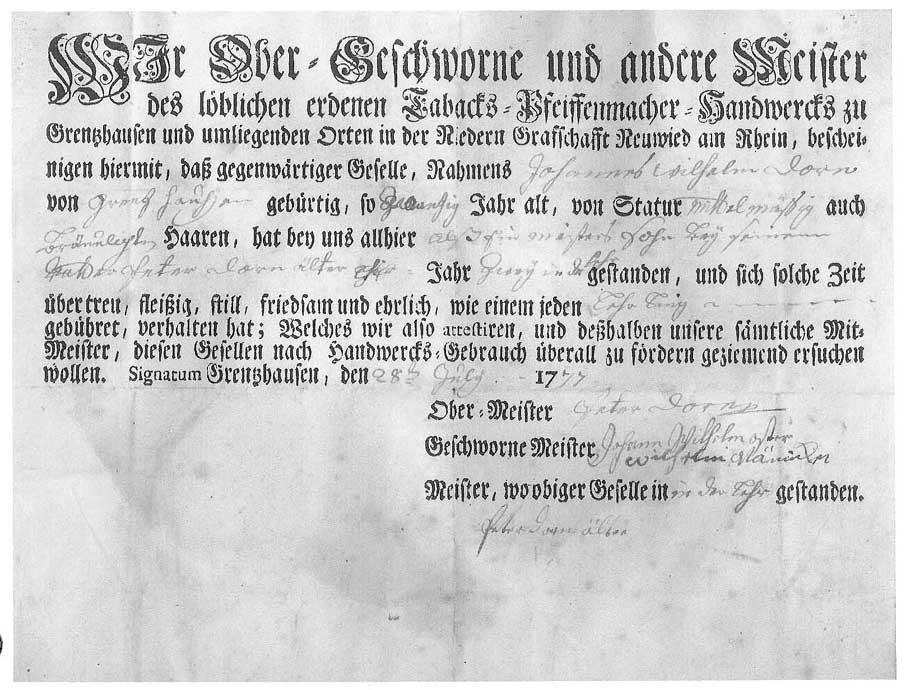 WIr Ober-Geschworne und andere Meister
des löblichen erdenen Tabacks-Pfeiffenmacher-Handwercks zu
Grentzhausen und umliegenden Orten in der Niedern Grafschafft Neuwied am Rhein, beschei-
nigen hiermit, daß gegenwärtiger Geselle, Nahmens Johannes Wilhelm Dorn
von gebürtig, so Zwantzig Jahr alt, von Statur mittelmäßig auch
Haaren, hat bey uns allhier meisters Sohn bey seinem
Peter Dorn älter Jahr Zwey in der gestanden, und sich solche Zeit
über treu, fleißig, still, friedsam und ehrlich, wie einem jeden
gebühret, verhalten hat; Welches wir also attestiren, und deßhalben unsere sämtliche Mit-
Meister, diesen Gesellen nach Handwercks-Gebrauch überall zu fördern geziemend ersuchen
wollen. Signatum Grentzhausen, den 28th July 1777
Ober-Meister Peter Dorn
Geschworne Meister, Johann Wilhelm
Wilhelm
Meister, wo obiger Geselle in in der Lehr gestanden.
Peter Dorn älter